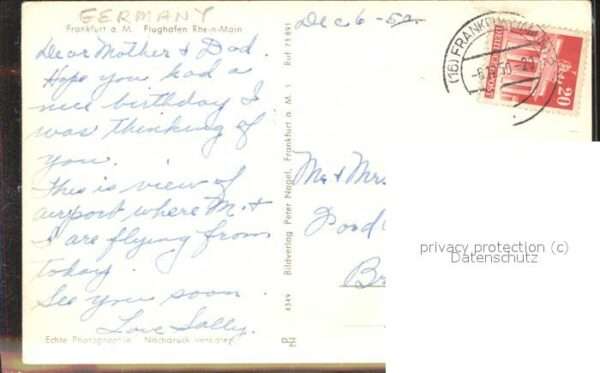 GERMANY
Frankfurt a. M. Flughafen Rhein-Main
Dec 6 - 52
Dear Mother & Dad.
Hope you had a
nice birthday I
was thinking of
you.
This is view of
airport where M. &
I are flying from
today.
See you soon.
Love Sally.
Echte Photographie Nachdruck verboten
4349 Bildverlag Peter Nagel, Frankfurt a. M. 1 Ruf 75891
(16) FRANKFURT
DEUTSCHE POST
20
Mr & Mrs.
privacy protection (c)
Datenschutz